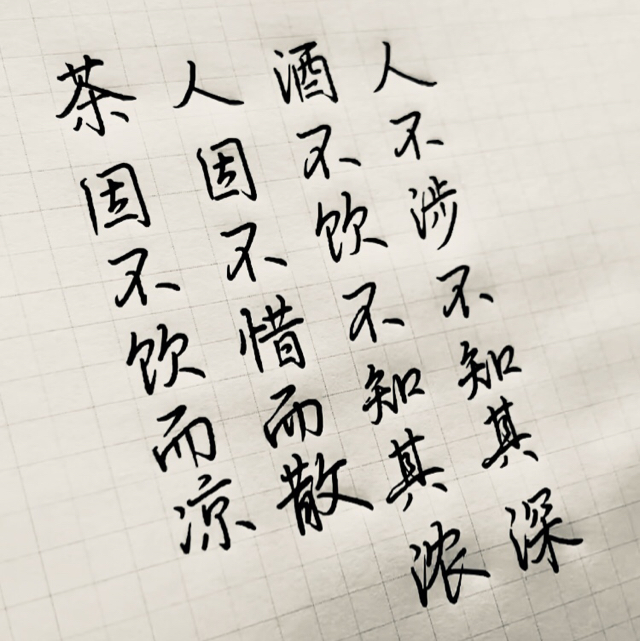 茶因不饮而凉
人因不惜而散
酒不饮不知其浓
人不涉不知其深